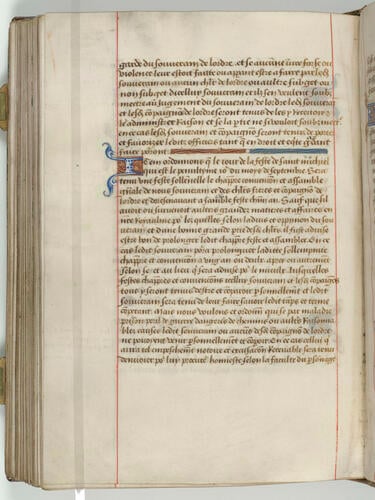 garde du souverain de lordre. et se aucune iniure force ou
violence leur estoit faitte ou apparant estre a faire par
souverain ou aucun chlr de lordre ou aultre subget ou
non subget dicelluy souverain et ilz sen veulent soubz
mettre au Jugement du souverain de lordre
et compaignons de lordre seront tenus de les y Recevoir
administrer Raison et se la partie ne si vouloit soubzmettre
en ce cas souverain et compaignons seront tenus de
et favoriser officiers tant quen droit et equite
faire porront
Item ordonnons que le jour de la feste de saint michiel
qui est le penultime jour du moys de septembre Sera
tenu une feste sollenelle chappitre convencion et assamblee
gnale de nous souverain et des chlrs freres et compaignons de
lordre et doresenavant a samble feste chun an. Sauf que sil
avoit ou survenoit aultres grandes matieres et affaires en
nre Royaulme pour lesquelles selon ladvis et oppinion du sou
verain et dune bonne grande partie desd. chlrs il fust advise
estre bon de prolonguer ledit chappitre feste et assamblee. En ce
cas ledit souverain porra prolonguer ladite sollempnite
chappitre et convencion a ung an ou deulx apres ou aultrement
selon le et au lieu quil sera advise pour le mieulx. Ausquelles
festes chappitres et convencions souverain et
tous y seront tenus destre et comparoir personnellement et ledit
souverain sera tenu de leur faire savoir ledit temps et terme
competant. Mais nous voulons et ordonnons que se par maladie
prison peril de guerre dangiers de chemins ou aultres Raisonna
bles causes ledit souverain ou aucuns desd. compaignons de lordre
ne pooyent venir personnellement et comparoir. En ce cas cellui qui
aura tel empeschement notoire et excusacion Recevable sera tenu
denvoier pour luy procureur honneste selon la faculte du personage